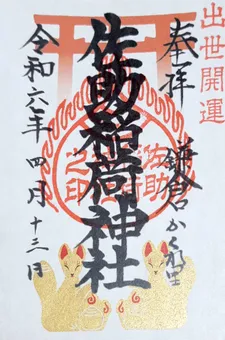 出世開運
奉拝
鎌倉かくれ里
佐助稲荷神社
佐助
之印
令和六年四月十三日